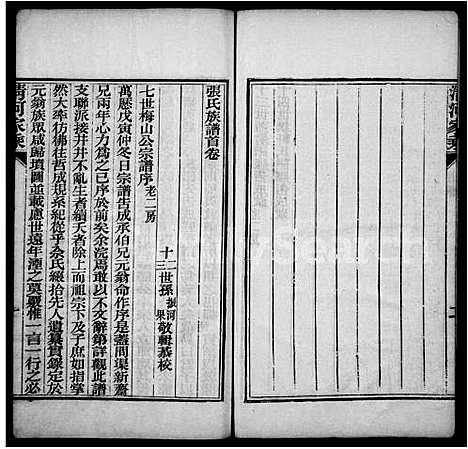 清河家乘
張氏族譜首卷
七世梅山公宗譜序 老二房
十二世孫 振河 敬輯
十三 果 恭校
萬歷戊寅仲冬日宗譜告成承伯兄元翁命作序是蓋閭渠新齋
兄兩年心力為之已序於前矣余浣焉敢以不文辭第詳觀此譜
支聯派接井井不亂生者續天者除上而祖宗下及子庶如指掌
然大率彷彿往哲成規系紀從乎余氏綴拾先人遺纂實錄定於
元翁族眾咸歸墳圖並載慮世遠年湮之莫嚴惟一言一行之必